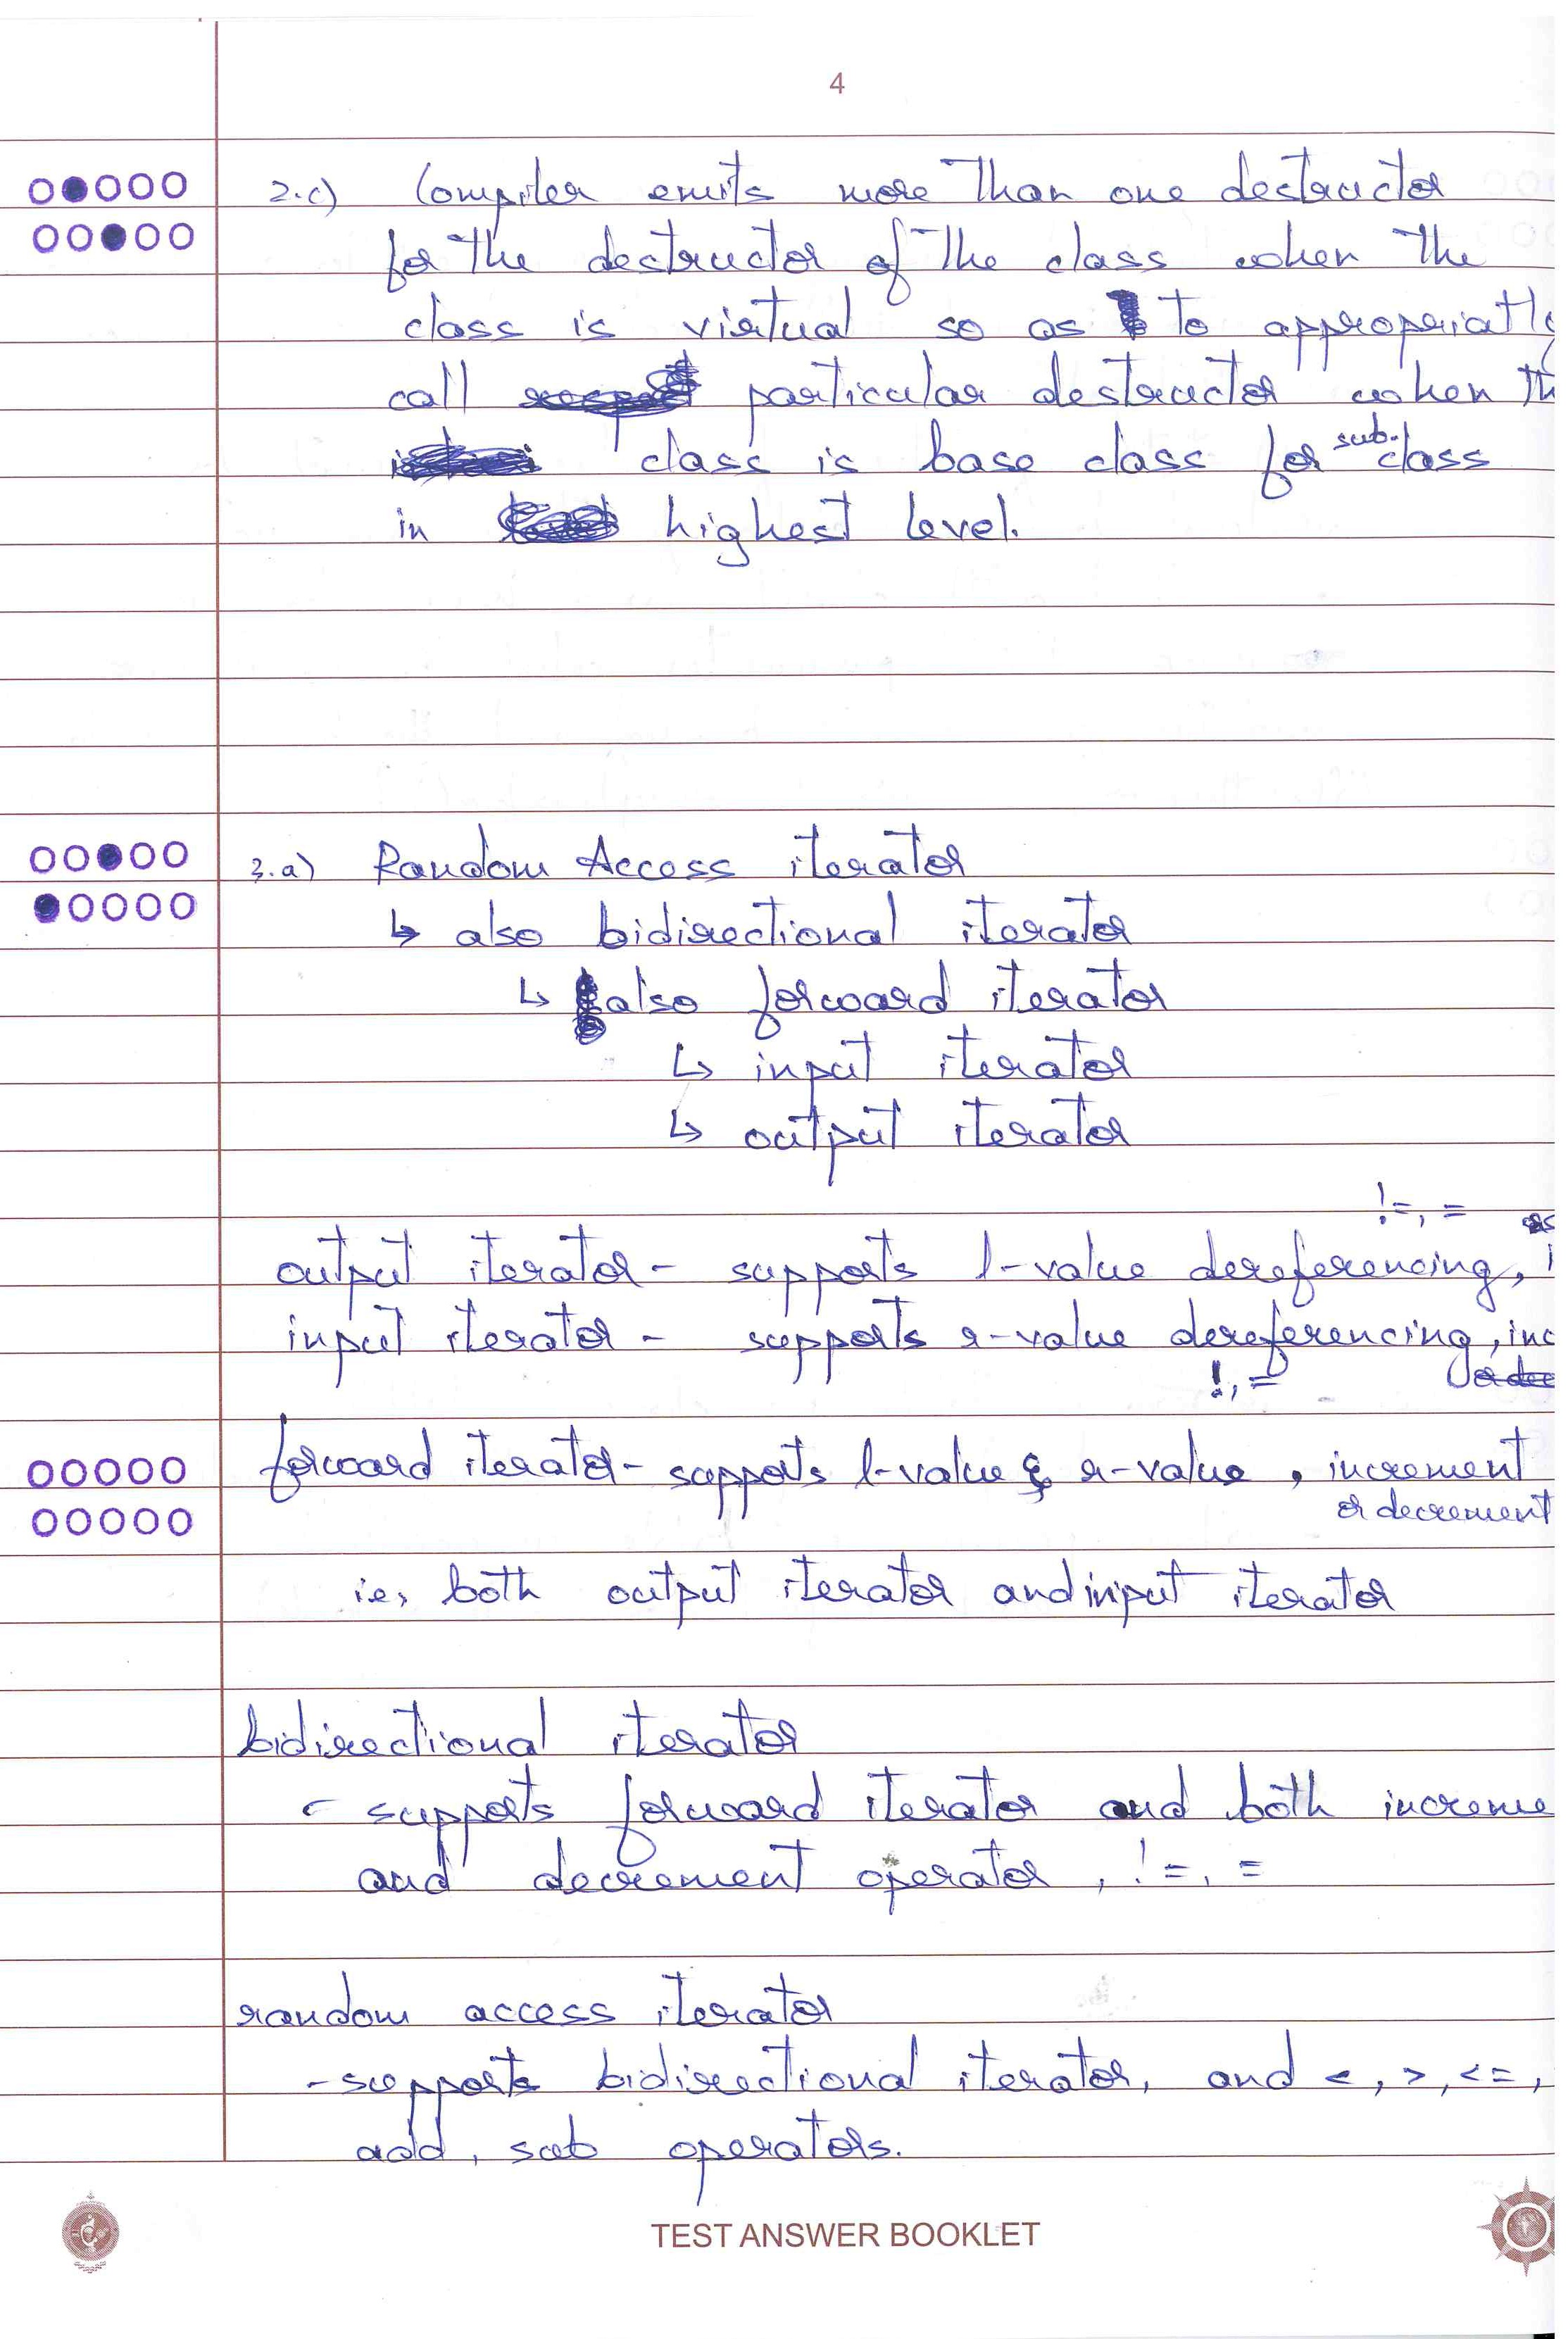 4
2.c) Compiler emits more than one destructor
for the destructor of the class when the
class is virtual so as to appropriatly
call particular destructor when th
class is base class for sub-class
in highest level.
3.a) Random Access iterator
↳ also bidirectional iterator
↳ also forward iterator
↳ input iterator
↳ output iterator
!=, =
output iterator - supports l-value dereferencing, i
input iterator - supports r-value dereferencing, inc
!, =
forward iterator - supports l-value & r-value, increment
or decrement
ie, both output iterator and input iterator
bidirectional iterator
- supports forward iterator and both increme
and decrement operator, !=, =
random access iterator
- supports bidirectional iterator, and <, >, <=,
add, sub operators.
TEST ANSWER BOOKLET